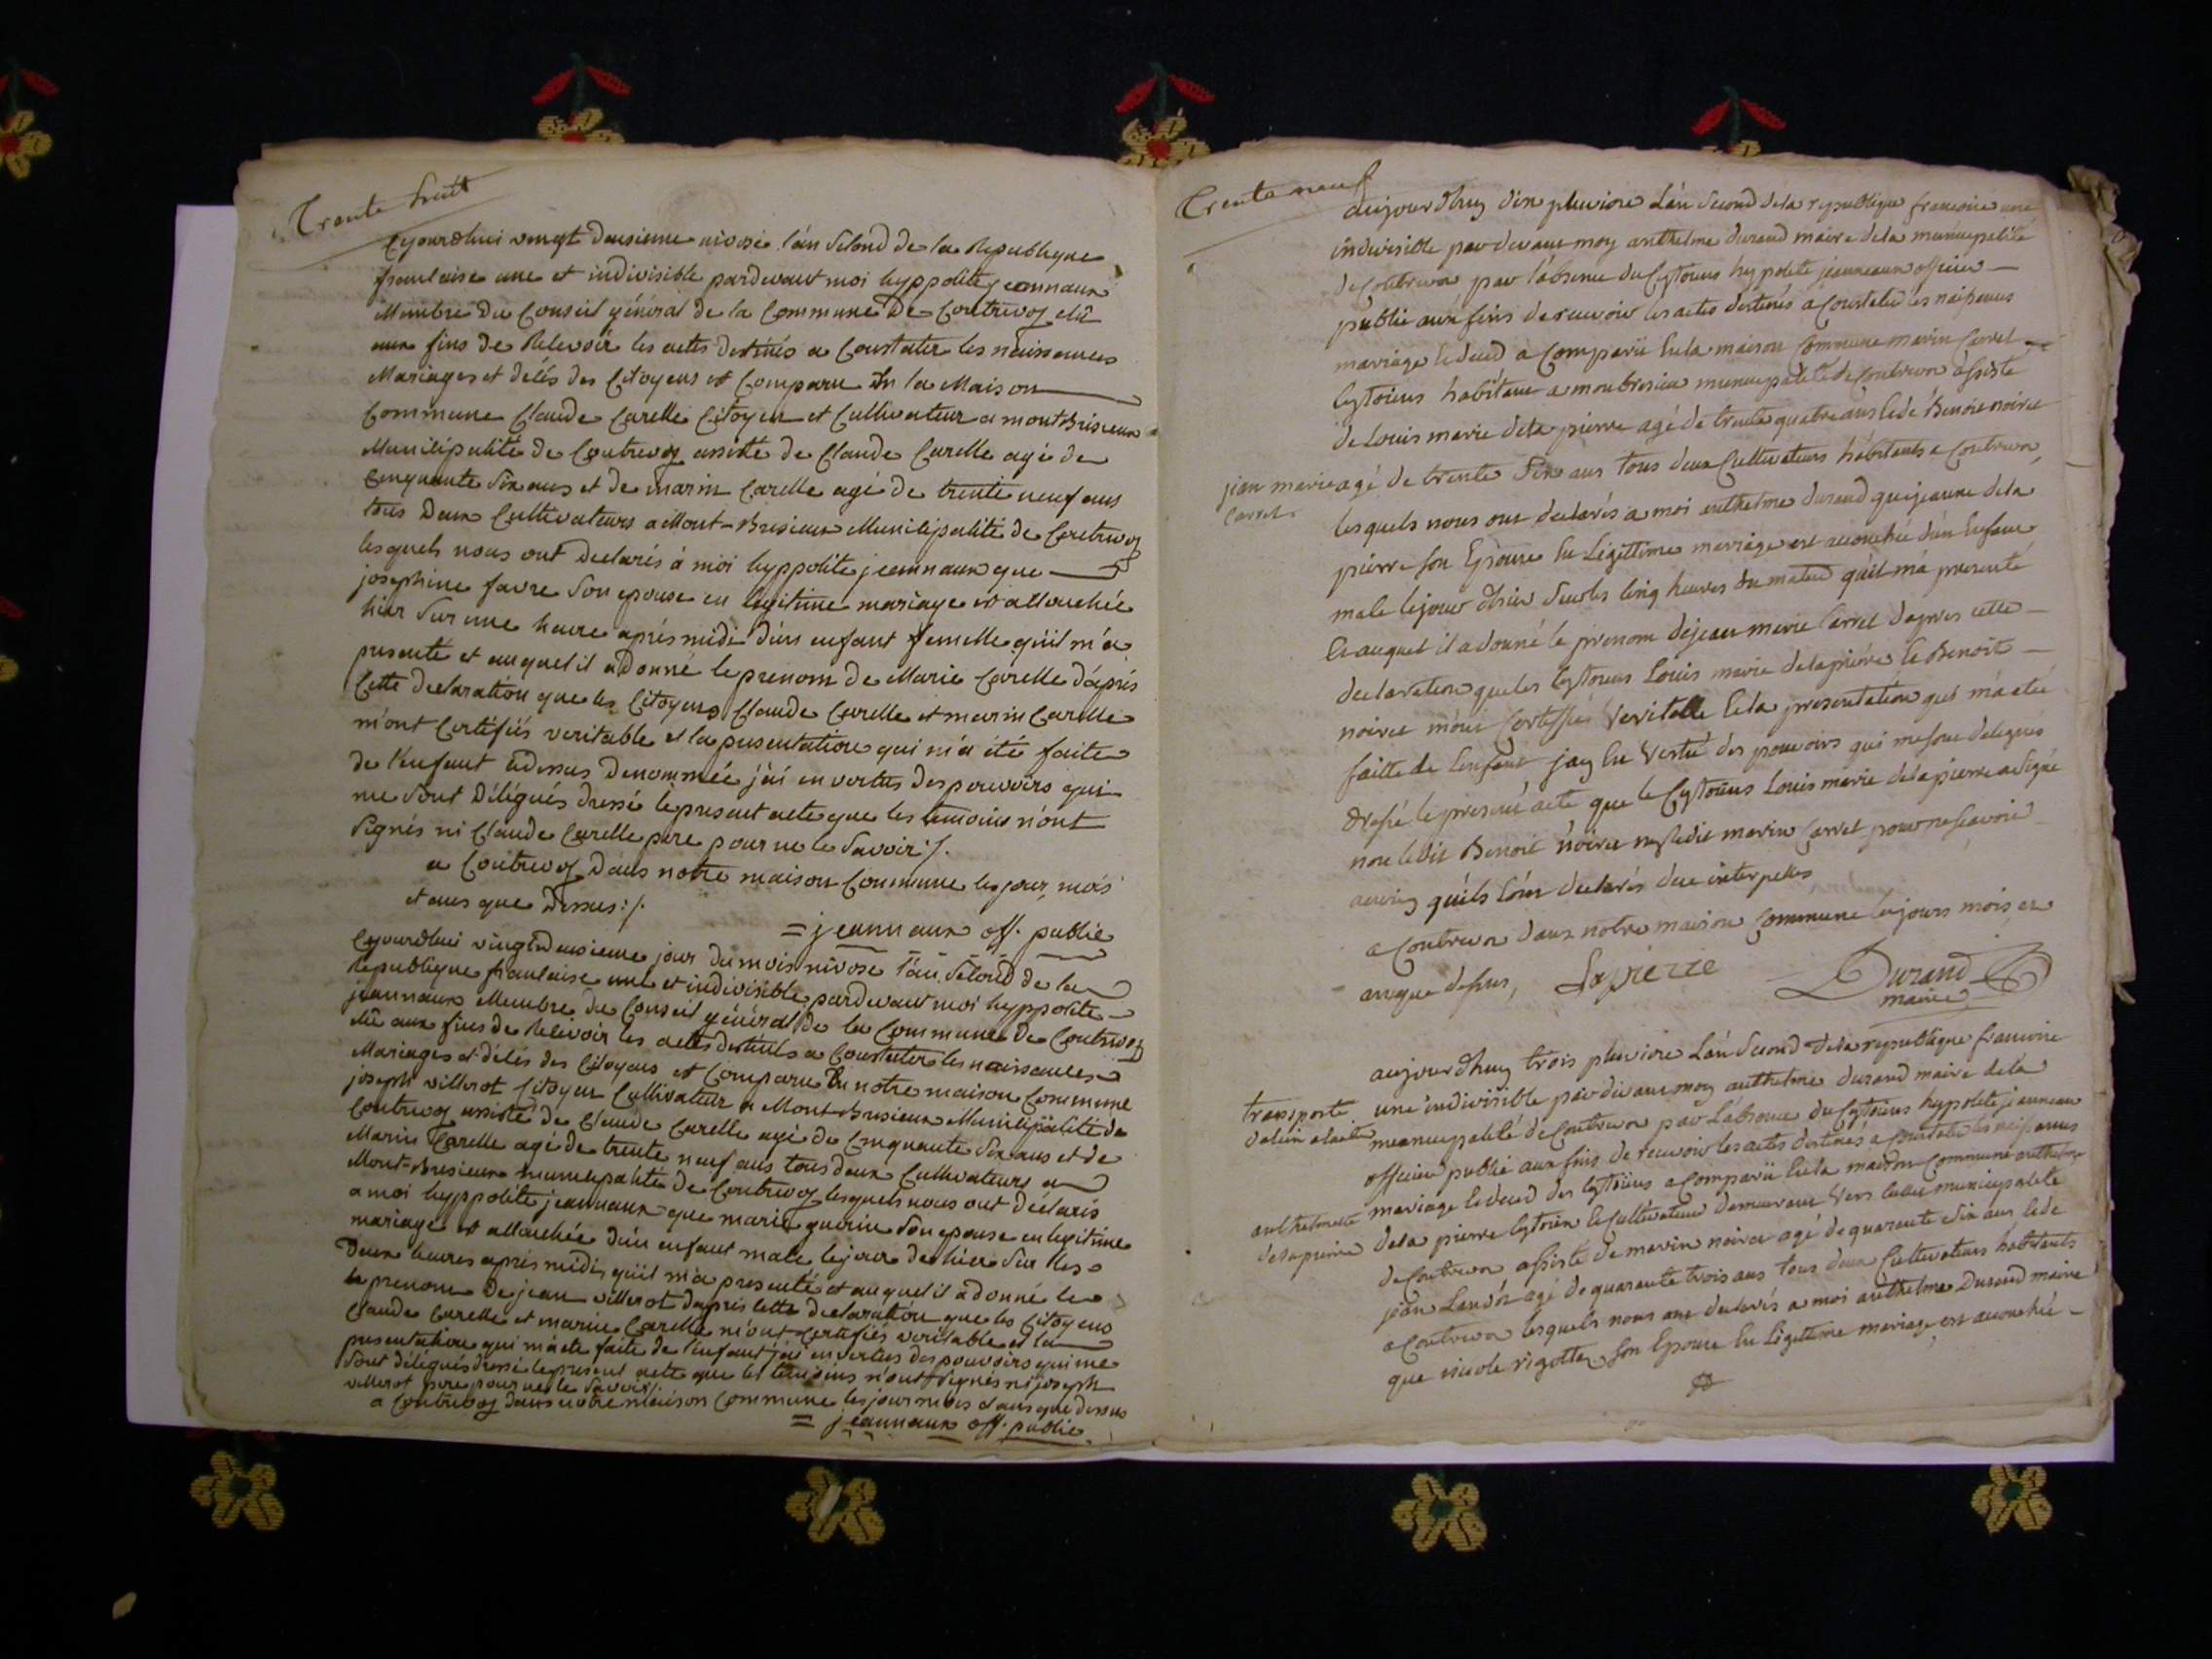 Trente huit
Cejourdhui vingt deusieme nivose l'án Second de la Republique
francaise une et indivisible pardevant moi hyppolite jeannaux
Membre du Conseil général de la Commune De Contrevoz elû
aux fins de Recevoir les actes destinés a Constater les naissances
Mariages et décés des Citoyens est Comparu En la Maison
Commune Claude Carelle Citoyen et Cultivateur a montBrisieux
Municipalité de Contrevoz assisté de Claude Carelle agé de
Cinquante Six ans et de marin Carelle agé de trente neuf ans
tous Deux Cultivateurs a Mont-Brisieux Municipalité de Contrevoz
lesquels nous ont Declarés à moi hyppolite jeannaux que
josephine favre Son epouse en legitime mariage est accouchée
hier Sur une heure aprés midi d'un enfant femelle qu'il m'a
presenté et auquel il a Donné le prenom de Marie Carelle d'aprés
Cette declaration que les Citoyens Claude Carelle et marin Carelle
m'ont Certifiés veritable et la presentation qui m'a été faite
de l'enfant cidessus denommée j'ai en vertus des pouvoirs qui
me Sont Délégués dressé le present acte que les temoins n'ont
Signés ni Claude Carelle pere pour ne le Savoir /.
a Contrevoz dans notre maison Commune les jour, mois
et ans que Dessus :/.
= jeannaux off. public
Cejourdhui vingtdeusieme jour du mois nivose l'án Second de la
Republique francaise une et indivisible pardevant moi hyppolite
jeannaux Membre du Conseil général de la Commune De Contrevoz
elû aux fins de Recevoir les actes destinés a Constater les naissances
Mariages et décés des Citoyens est Comparu En notre maison Commune
joseph villerot Citoyen Cultivateur a Mont-Brisieux Municipalité de
Contrevoz assisté de Claude Carelle agé de Cinquante Six ans et de
Marin Carelle agé de trente neuf ans tous deux Cultivateurs a
Mont-Brisieux municipalité de Contrevoz lesquels nous ont déclarés
a moi hyppolite jeannaux que marie guerin Son epouse en legitime
mariage est accouchée d'un enfant male le jour de hier Sur les
Deux heures aprés midi, qu'il m'a presenté et auquel il a donné le
le prenom De jean villerot d'aprés Cette declaration que les Citoyens
Claude Carelle et marin Carelle m'ont Certifiés veritable et la
presentation qui m'a ete faite de l'enfant j'ai en vertus des pouvoirs qui me
Sont délégués dressé le present acte que les temoins n'ont Signés ni joseph
villerot pere pour ne le Savoir /.
a Contrevoz dans notre maison Commune les jour mois et ans que dessus
= jeannaux off. public
Trente neuf
aujourdhuy dix pluviose L'án Second de la republique francoise une
indivisible par devant moy anthelme durand maire de la municipalité
de Contrevoz par l'absence du Cytoiens hypolite jeanneaux officier
public aux fins de recevoir les actes destinés a Constater les naisances
mariage Ledeced a Comparü En la maison Commune marin Carrel
Cytoiens habitant a montbresieu municipalité de Contrevoz assisté
de Louis marie dela pierre agé de trente quatre ans Ede Benoit noiret
jean marie
Carrel
agé de trente Six ans tous deux Cultivateurs habitants a Contrevoz
lesquels nous ont declarés a moi anthelme durand que jeanne dela
pierre Son Epouse En Legittime mariage est accouchée d'un Enfant
male le jour d'hier Sur les Cinq heures du matin qu'il m'a presenté
Et auquel il a donné le prenom de jean marie Carrel d'apres cette
declaration que les Cytoiens Louis marie delapierre Et Benoit
noiret m'ont Certiffié Veritable Et la presentation qui m'a eté
faitte de l'enfant jay En Vertu des pouvoirs qui me Sont delegués
dressé le present acte que le Cytoiens Louis marie delapierre a Signé
non Ledit Benoit noiret ny Ledit marin Carrel pour ne Scavoir
qu'ils l'ont declarés de interpelles
a Contrevoz dans notre maison Commune les jours mois et
an que dessus,
Lapierre
Durand
maire
aujourdhuy trois pluviose L'án Second de la republique francoise
transporté
une indivisible par devant moy anthelme durand maire dela
municipalité de Contrevoz par L'absence du Cytoiens hypolite jeanneau
officier public aux fins de recevoir les actes destinés a Constater les naisances
mariage Ledeced des Cytoiens a Comparü En la maison Commune anthelme
delapierre
dela pierre Cytoien Et Cultivateur demeurant Vers En municipalité
de Contrevoz assisté de marin noiret agé de quarante Six ans Ede
jean Landoz agé de quarante trois ans tous deux Cultivateurs habitants
a Contrevoz lesquels nous ont declarés a moi anthelme Durand maire
que nicole rigottez Son Epouse En Legittime mariage est accouchée